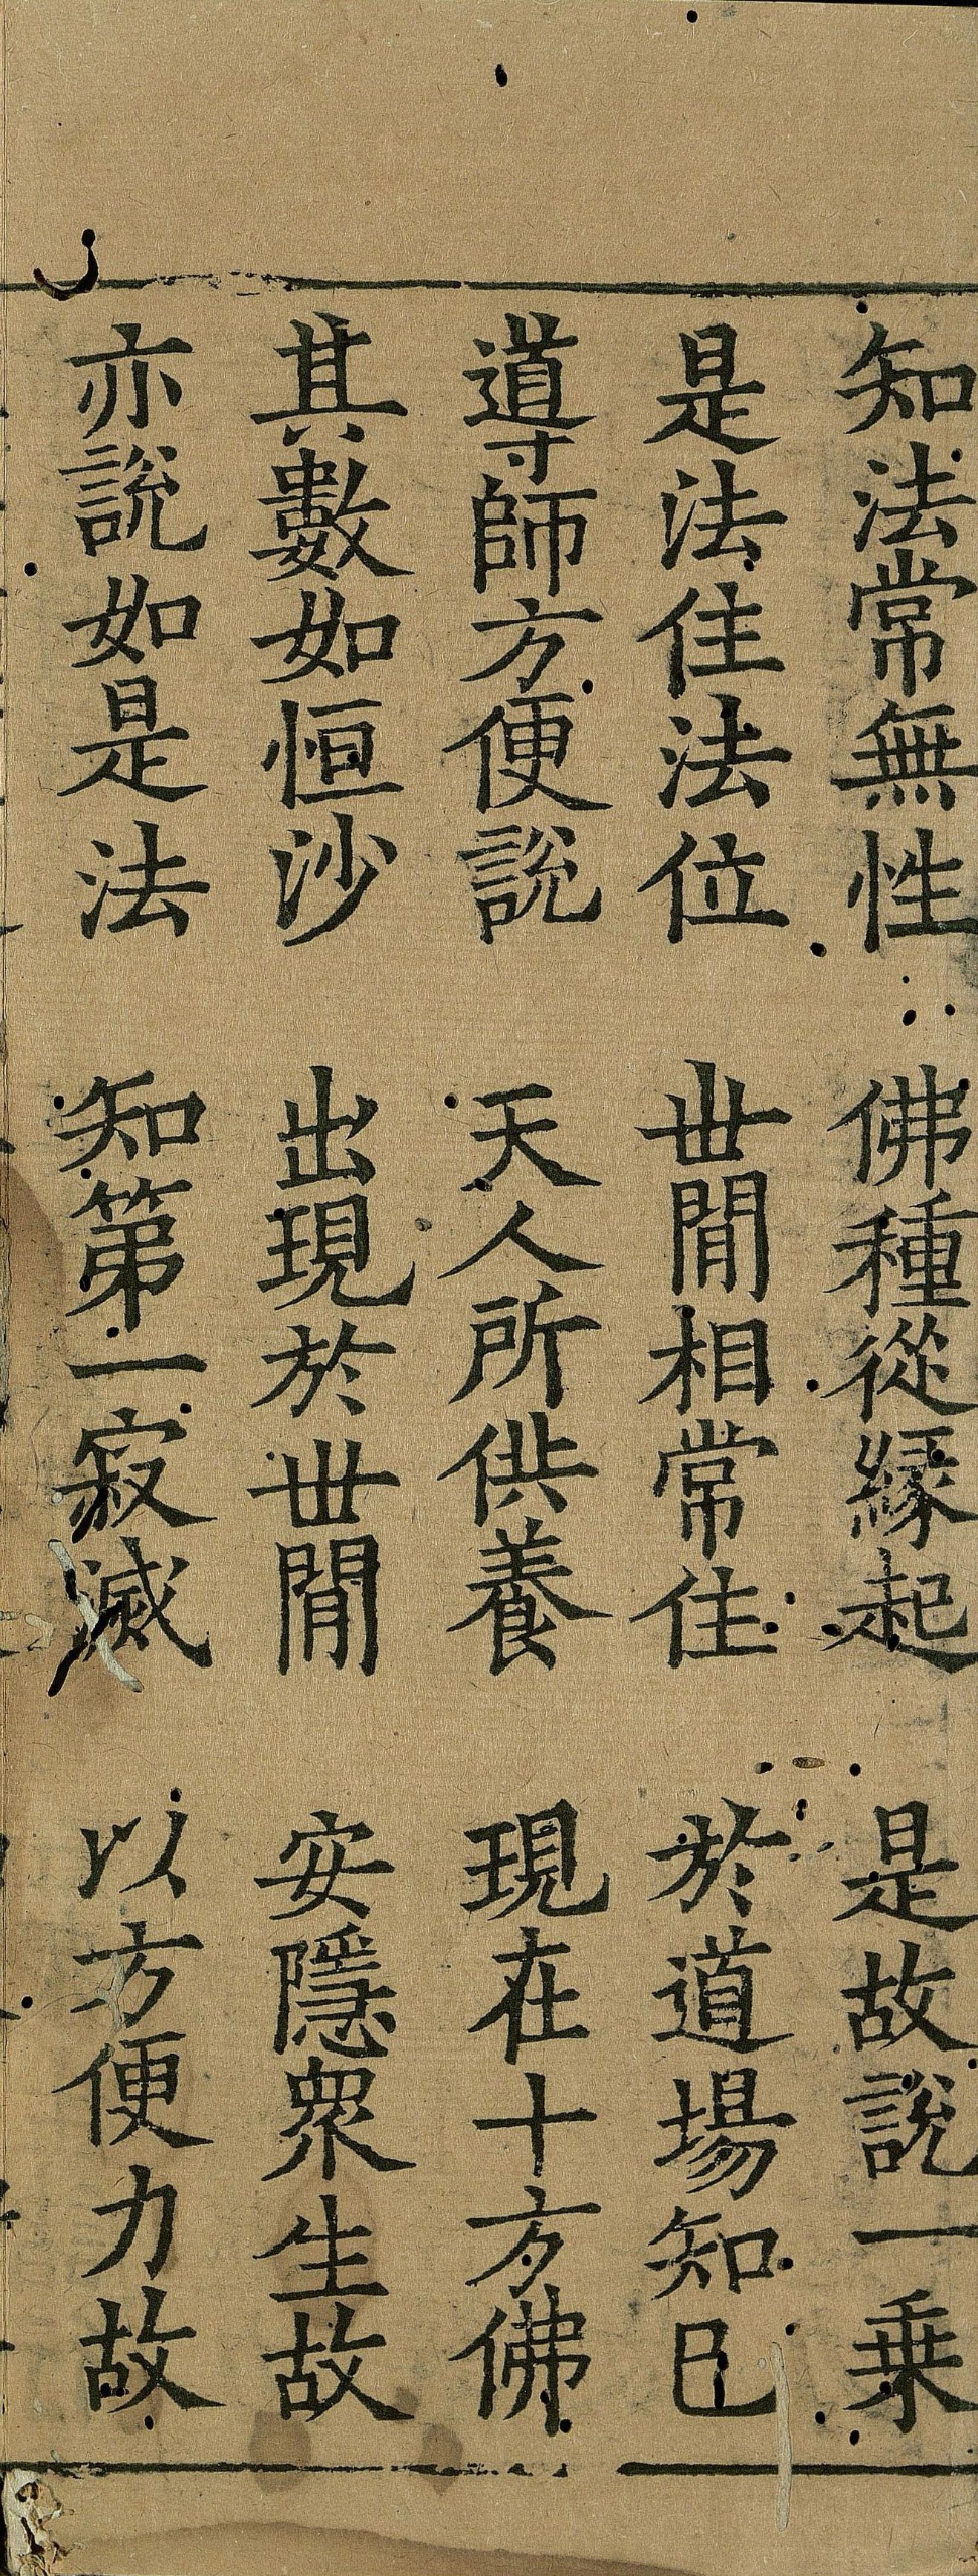 知法常無性　佛種從緣起　是故說一乘
是法住法位　世閒相常住　於道場知已
導師方便說　天人所供養　現在十方佛
其數如恒沙　出現於世閒　安隱眾生故
亦說如是法　知第一寂滅　以方便力故